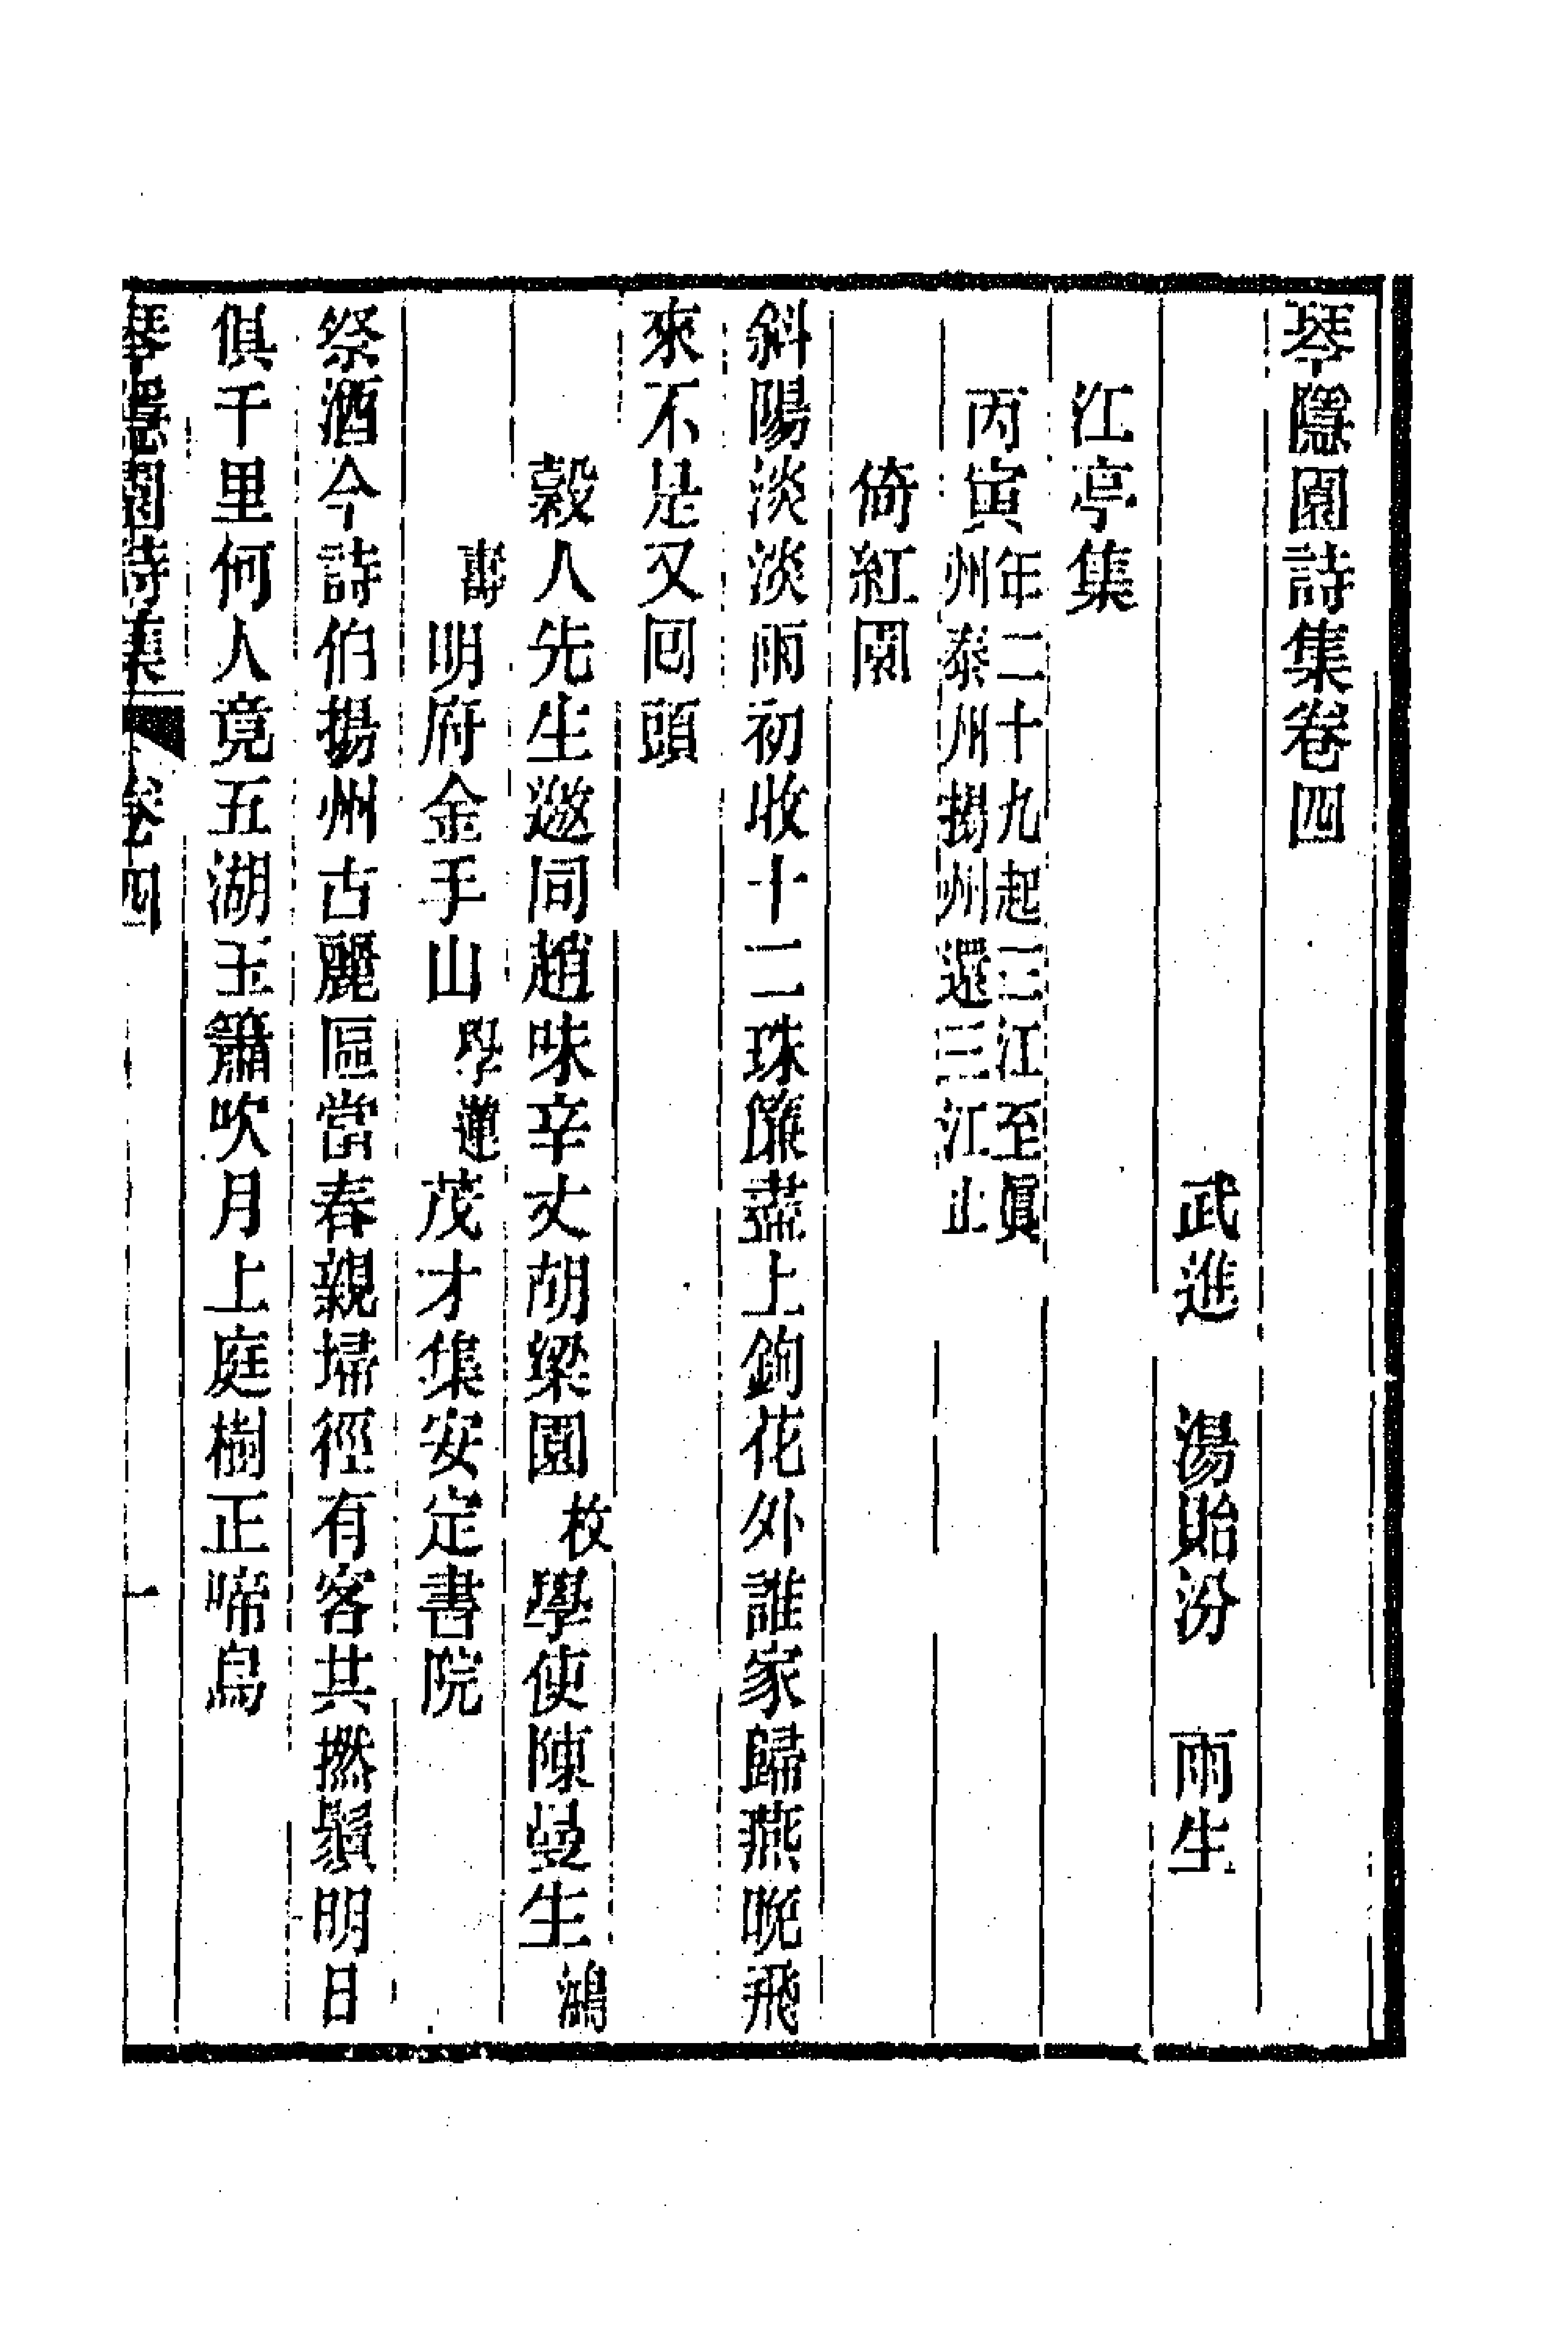 琴隱園詩集卷四
武進　湯貽汾　雨生
江亭集
丙寅年二十九起三江至眞州泰州揚州還三江止
倚紅閣
斜陽淡淡雨初收十二珠簾盡上鉤花外誰家歸燕晚飛
來不是又回頭
穀人先生邀同趙味辛丈胡梁園枚學使陳曼生鴻
壽明府金手山學蓮茂才集安定書院
祭酒今詩伯揚州古麗區當春親埽徑有客共撚鬚明日
俱千里何人竟五湖玉簫吹月上庭樹正啼烏
琴隱園詩集　卷四　一